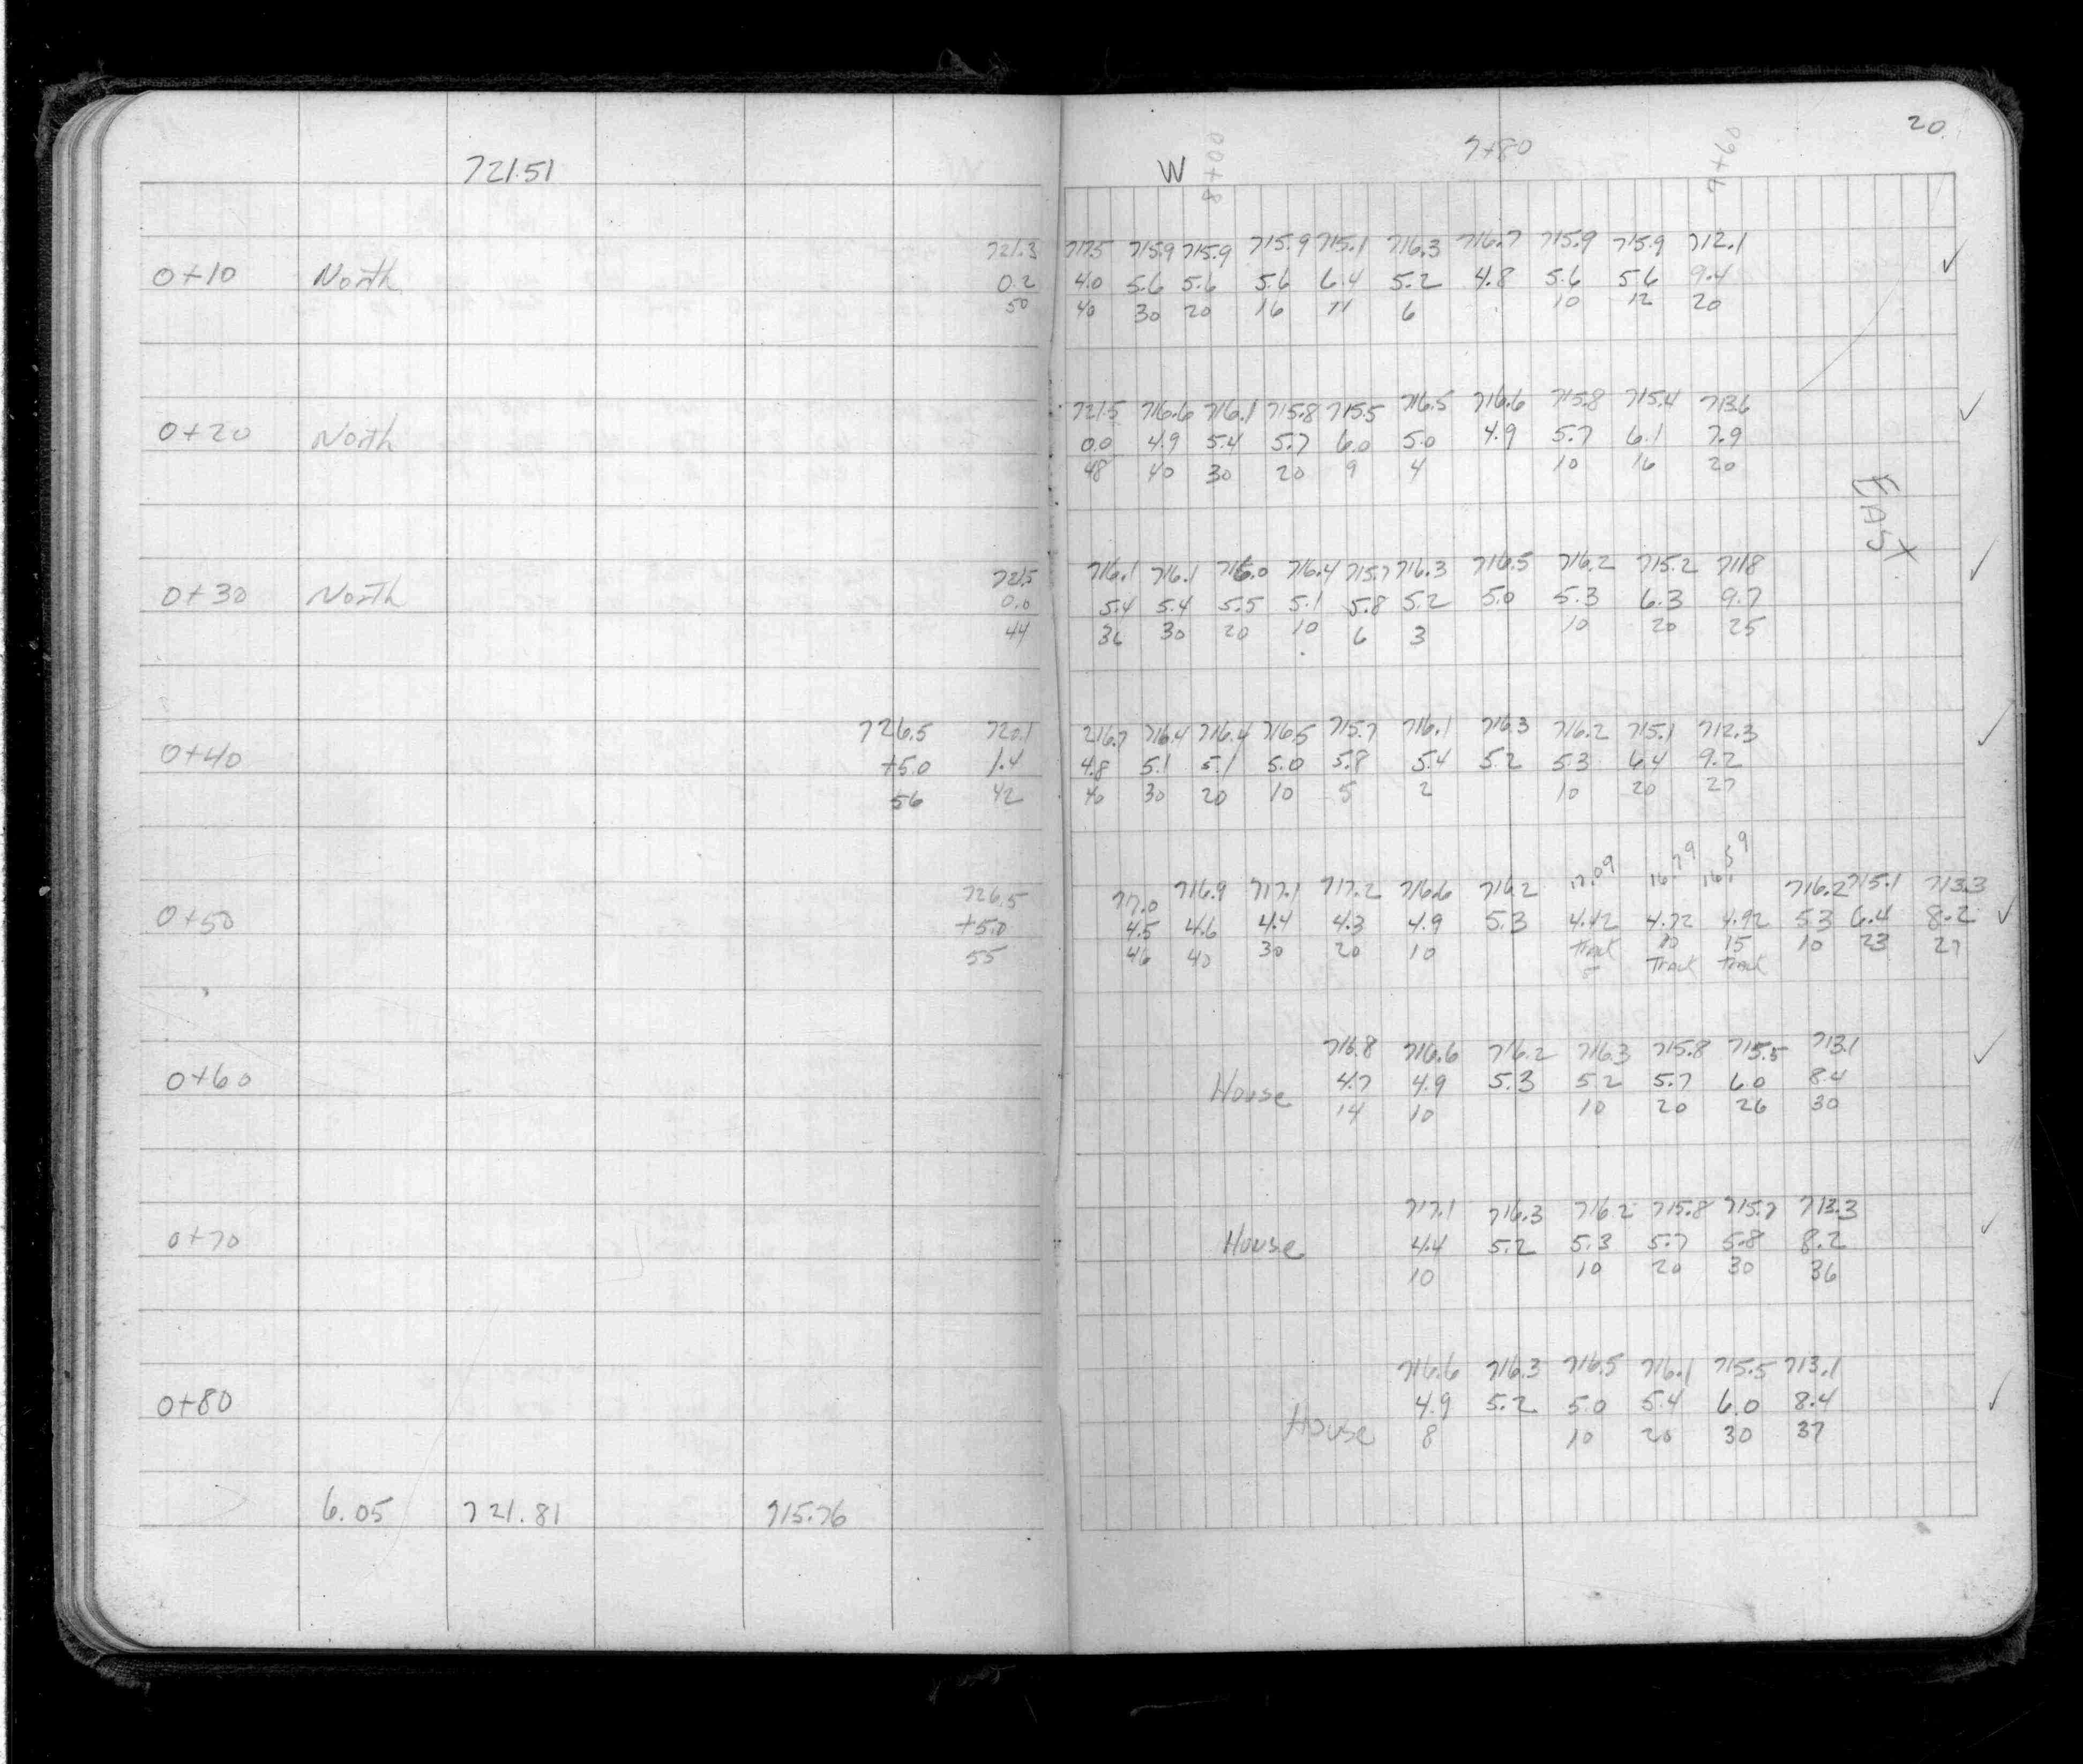 20
7+80
721.51 W 8+00 7+60
721.3 717.5 715.9 715.9 715.9 715.1 716.3 716.7 715.9 715.9 712.1 ✓
0+10 North 0.2 4.0 5.6 5.6 5.6 6.4 5.2 4.8 5.6 5.6 9.4
50 40 30 20 16 11 6 10 12 20
721.5 716.6 716.1 715.8 715.5 716.5 716.6 715.8 715.4 713.6 ✓
0+20 North 0.0 4.9 5.4 5.7 6.0 5.0 4.9 5.7 6.1 7.9
48 40 30 20 9 4 10 16 20
EAST
721.5 716.1 716.1 716.0 716.4 715.7 716.3 716.5 716.2 715.2 711.8 ✓
0+30 North 0.0 5.4 5.4 5.5 5.1 5.8 5.2 5.0 5.3 6.3 9.7
44 36 30 20 10 6 3 10 20 25
726.5 720.1 216.7 716.4 716.4 716.5 715.7 716.1 716.3 716.2 715.1 712.3 ✓
0+40 +5.0 1.4 4.8 5.1 5.1 5.0 5.8 5.4 5.2 5.3 6.4 9.2
56 42 40 30 20 10 5 2 10 20 27
726.5 717.0 716.9 717.1 717.2 716.6 716.2 17.09 16.79 16.59 716.2 715.1 713.3
0+50 +5.0 4.5 4.6 4.4 4.3 4.9 5.3 4.42 4.72 4.92 5.3 6.4 8.2 ✓
55 46 40 30 20 10 Track 10 15 10 23 27
5 Track Track
716.8 716.6 716.2 716.3 715.8 715.5 713.1 ✓
0+60 House 4.7 4.9 5.3 5.2 5.7 6.0 8.4
14 10 10 20 26 30
717.1 716.3 716.2 715.8 715.7 713.3 ✓
0+70 House 4.4 5.2 5.3 5.7 5.8 8.2
10 10 20 30 36
716.6 716.3 716.5 716.1 715.5 713.1
0+80 4.9 5.2 5.0 5.4 6.0 8.4 ✓
House 8 10 20 30 37
6.05 721.81 715.76